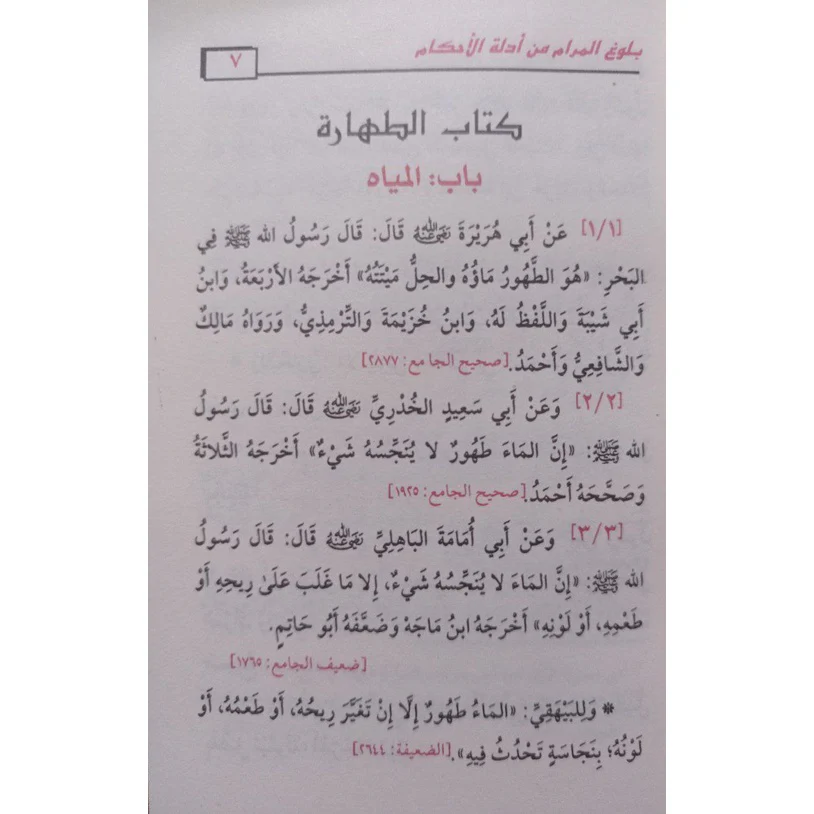 بلوغ المرام من أدلة الأحكام
٧
كتاب الطهارة
باب: المياه
[١/١] عَنْ أَبِي هُرَيْرَةَ رَضِيَ اللهُ عَنْهُ قَالَ: قَالَ رَسُولُ الله ﷺ فِي
البَحْرِ: «هُوَ الطَّهُورُ مَاؤُهُ والحِلُّ مَيْتَتُهُ» أَخْرَجَهُ الأَرْبَعَةُ، وَابنُ
أَبِي شَيْبَةَ وَاللَّفْظُ لَهُ، وَابنُ خُزَيْمَةَ وَالتِّرْمِذِيُّ، وَرَوَاهُ مَالِكٌ
وَالشَّافِعِيُّ وَأَحْمَدُ.[صحيح الجامع: ٢٨٧٧]
[٢/٢] وَعَنْ أَبِي سَعِيدٍ الخُدْرِيِّ رَضِيَ اللهُ عَنْهُ قَالَ: قَالَ رَسُولُ
الله ﷺ: «إِنَّ المَاءَ طَهُورٌ لا يُنَجِّسُهُ شَيْءٌ» أَخْرَجَهُ الثَّلاثَةُ
وَصَحَّحَهُ أَحْمَدُ.[صحيح الجامع: ١٩٢٥]
[٣/٣] وَعَنْ أَبِي أُمَامَةَ البَاهِلِيِّ رَضِيَ اللهُ عَنْهُ قَالَ: قَالَ رَسُولُ
الله ﷺ: «إِنَّ المَاءَ لا يُنَجِّسُهُ شَيْءٌ، إِلا مَا غَلَبَ عَلَىٰ رِيحِهِ أَوْ
طَعْمِهِ، أَوْ لَوْنِهِ» أَخْرَجَهُ ابنُ مَاجَهْ وَضَعَّفَهُ أَبُو حَاتِمٍ.
[ضعيف الجامع: ١٧٦٥]
* وَلِلبَيْهَقِيِّ: «المَاءُ طَهُورٌ إِلَّا إِنْ تَغَيَّرَ رِيحُهُ، أَوْ طَعْمُهُ، أَوْ
لَوْنُهُ؛ بِنَجَاسَةٍ تَحْدُثُ فِيهِ».[الضعيفة: ٢٦٤٤]